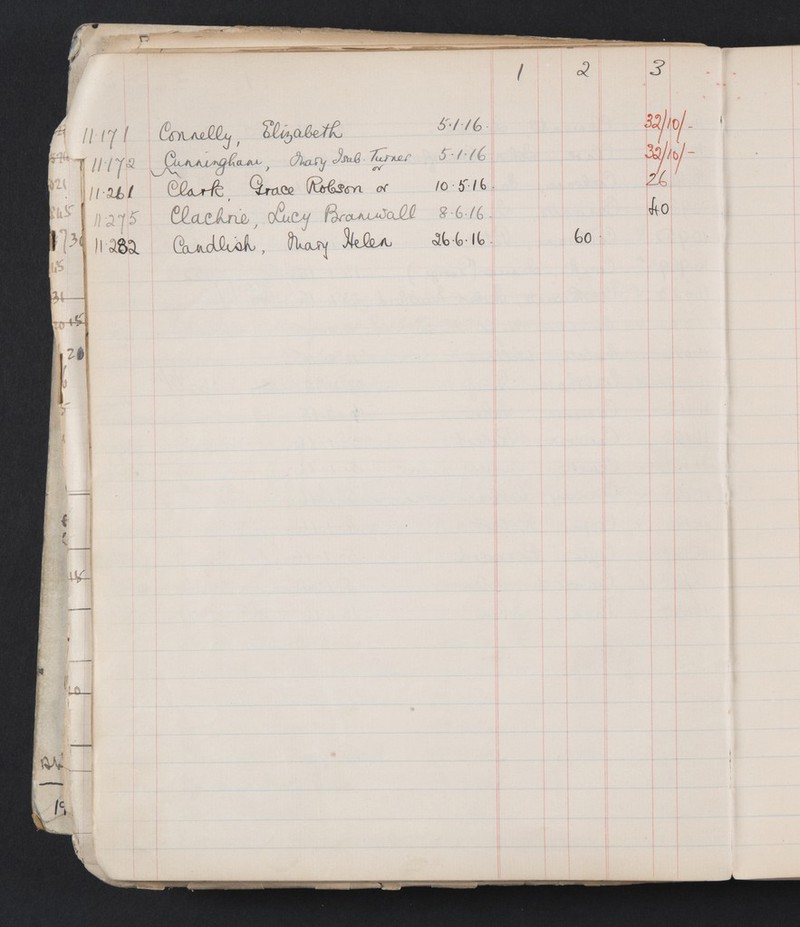 1 2 3
11·171 Connelly, Elizabeth 5·1·16. 32/10/-
11·172 Cunningham, Mary Isab. Turner 5·1·16 32/10/-
or
11·261 Clark, Grace Robson or 10·5·16. 26
11·275 Clachrie, Lucy Bramwall 8·6·16. 40
11·282 Candlish, Mary Helen 26·6·16. 60·
31
15
20
15
19